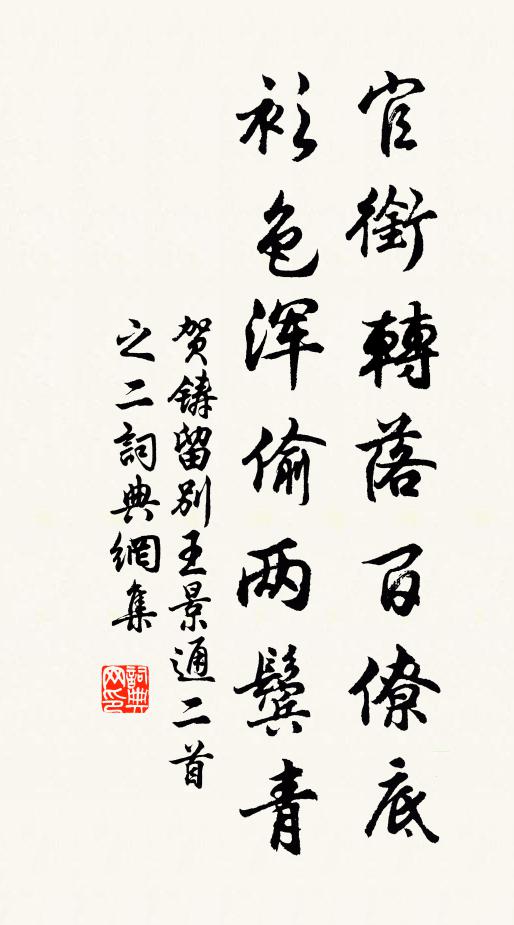 官銜轉落百僚底
衫色渾偷兩鬢青
贺鑄留别王景通二首
之二詞典網集
詞典
网印